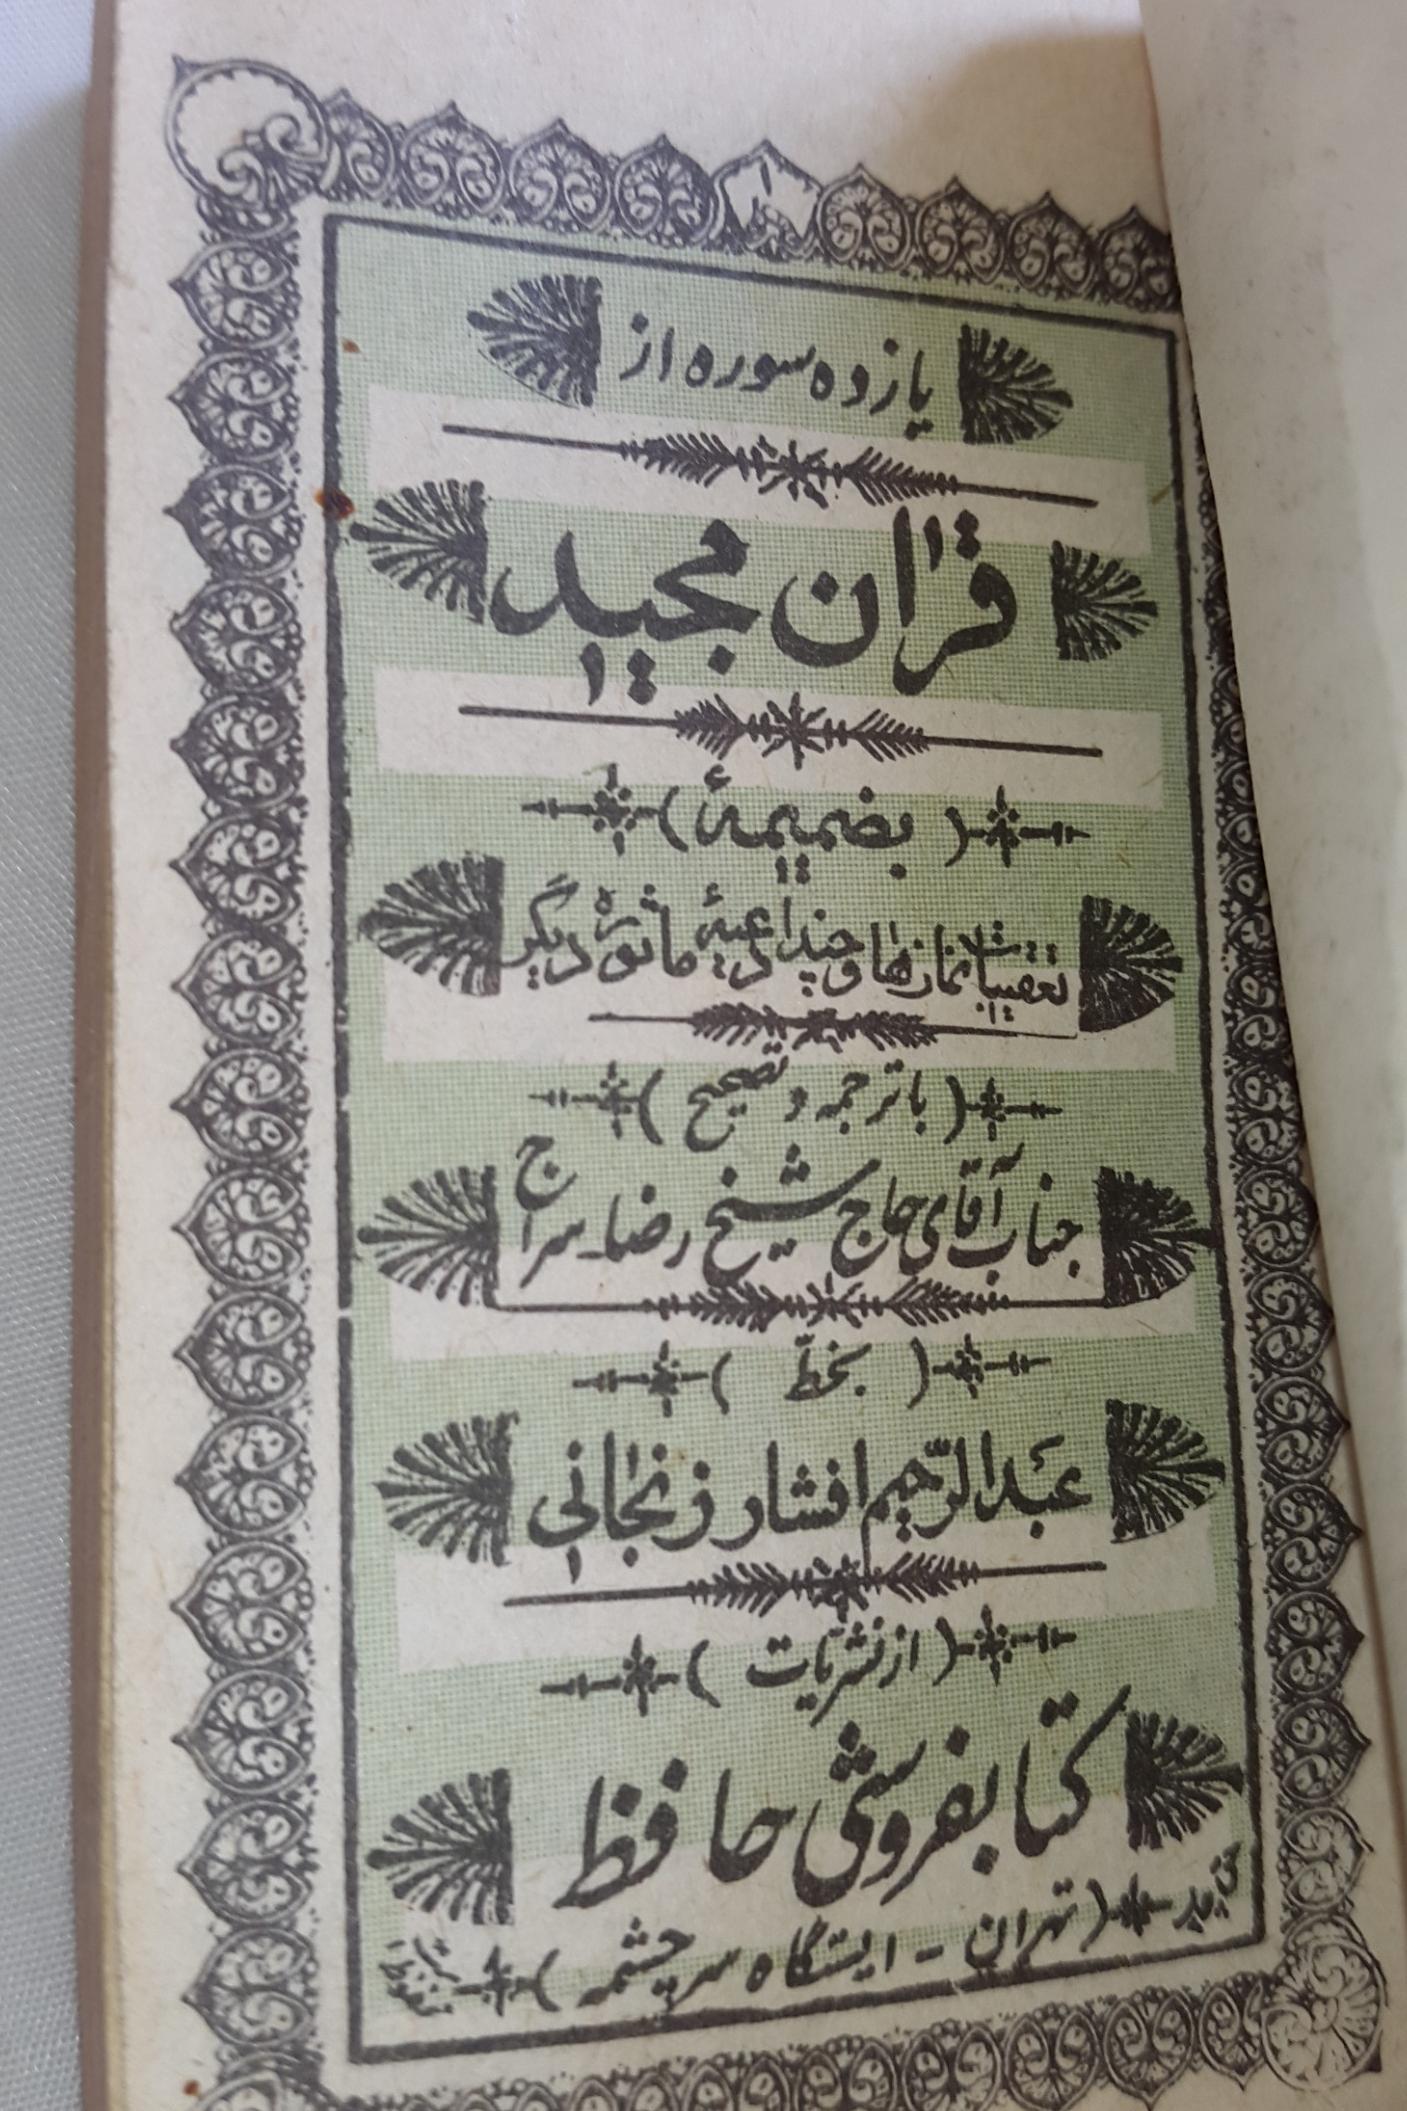 یازده سوره از
قرآن مجید
( بضمیمهٔ )
تعقیبات نمازها و چند ادعیهٔ ماثوره دیگر
( با ترجمه و تصحیح )
جناب آقای حاج شیخ رضا سراج
( بخطّ )
عبدالرّحیم افشار زنجانی
( از نشریات )
کتابفروشی حافظ
( تهران - ایستگاه سرچشمه )